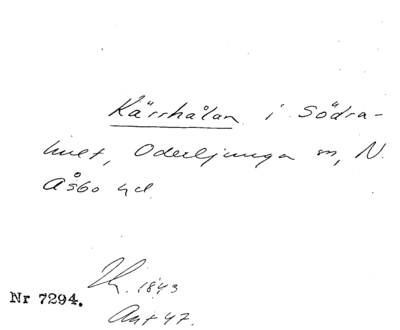 Kärrhålan i Södra-
hult, Oderljunga sn, N.
Åsbo hd.
1843
Nr 7294.
Ant 47.